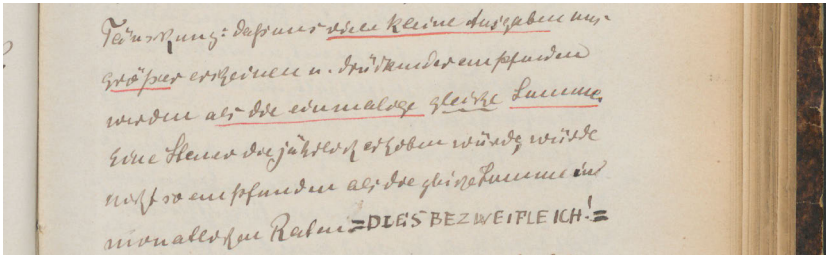 Täuschung: dass uns viele kleine Ausgaben un-
größer erscheinen u. drückender empfunden
werden als die einmalige gleiche Summe.
Eine Steuer die jährlich erhoben würde, würde
nicht so empfunden als die gleiche Summe in
monatlichen Raten =DIES BEZWEIFLE ICH!=